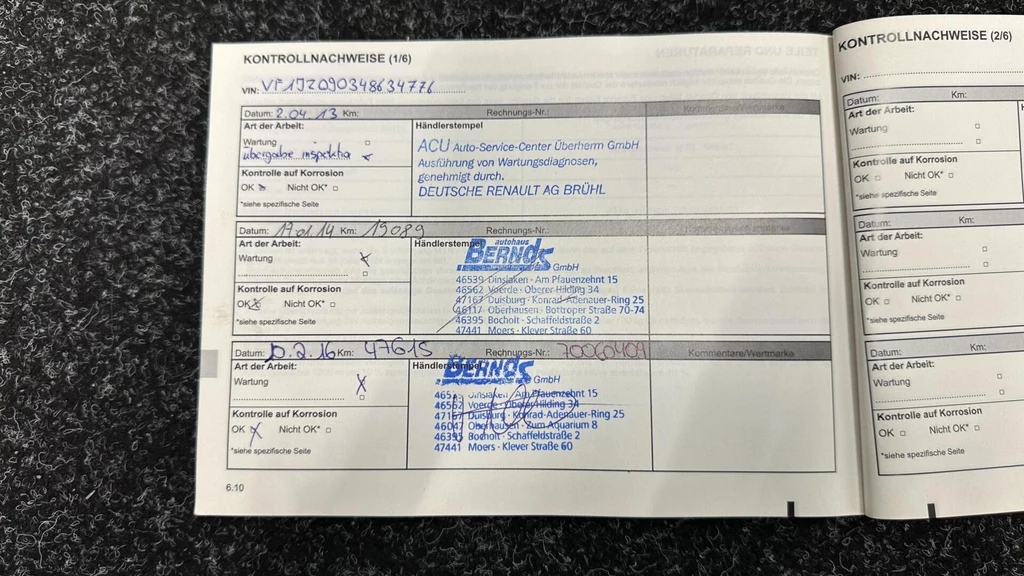 KONTROLLNACHWEISE (1/6)
VIN: VF1JZ090348634776
Datum: 2.04.13 Km: Rechnungs-Nr.: Kommentare/Wertmarke
Art der Arbeit:
Wartung
übergabe inspektio
Kontrolle auf Korrosion
OK Nicht OK*
*siehe spezifische Seite
Händlerstempel
ACU Auto-Service-Center Überherrn GmbH
Ausführung von Wartungsdiagnosen,
genehmigt durch.
DEUTSCHE RENAULT AG BRÜHL
Datum: 17.01.14 Km: 19089 Rechnungs-Nr.:
Art der Arbeit:
Wartung
Kontrolle auf Korrosion
OK Nicht OK*
*siehe spezifische Seite
Händlerstempel
autohaus
BERNDS
GmbH
46539 Dinslaken · Am Pfauenzehnt 15
46562 Voerde · Oberer Hilding 34
47167 Duisburg · Konrad-Adenauer-Ring 25
46117 Oberhausen · Bottroper Straße 70-74
46395 Bocholt · Schaffeldstraße 2
47441 Moers · Klever Straße 60
Datum: 2.16 Km: 47615 Rechnungs-Nr.: 70060409 Kommentare/Wertmarke
Art der Arbeit:
Wartung
Kontrolle auf Korrosion
OK Nicht OK*
*siehe spezifische Seite
Händlerstempel
BERNDS
GmbH
Dinslaken · Am Pfauenzehnt 15
46562 Voerde · Oberer Hilding 34
47167 Duisburg · Konrad-Adenauer-Ring 25
46047 Oberhausen · Zum Aquarium 8
46395 Bocholt · Schaffeldstraße 2
47441 Moers · Klever Straße 60
6.10
KONTROLLNACHWEISE (2/6)
VIN:
Datum: Km:
Art der Arbeit:
Wartung
Kontrolle auf Korrosion
OK Nicht OK*
*siehe spezifische Seite
Datum: Km:
Art der Arbeit:
Wartung
Kontrolle auf Korrosion
OK Nicht OK*
*siehe spezifische Seite
Datum: Km:
Art der Arbeit:
Wartung
Kontrolle auf Korrosion
OK Nicht OK*
*siehe spezifische Seite